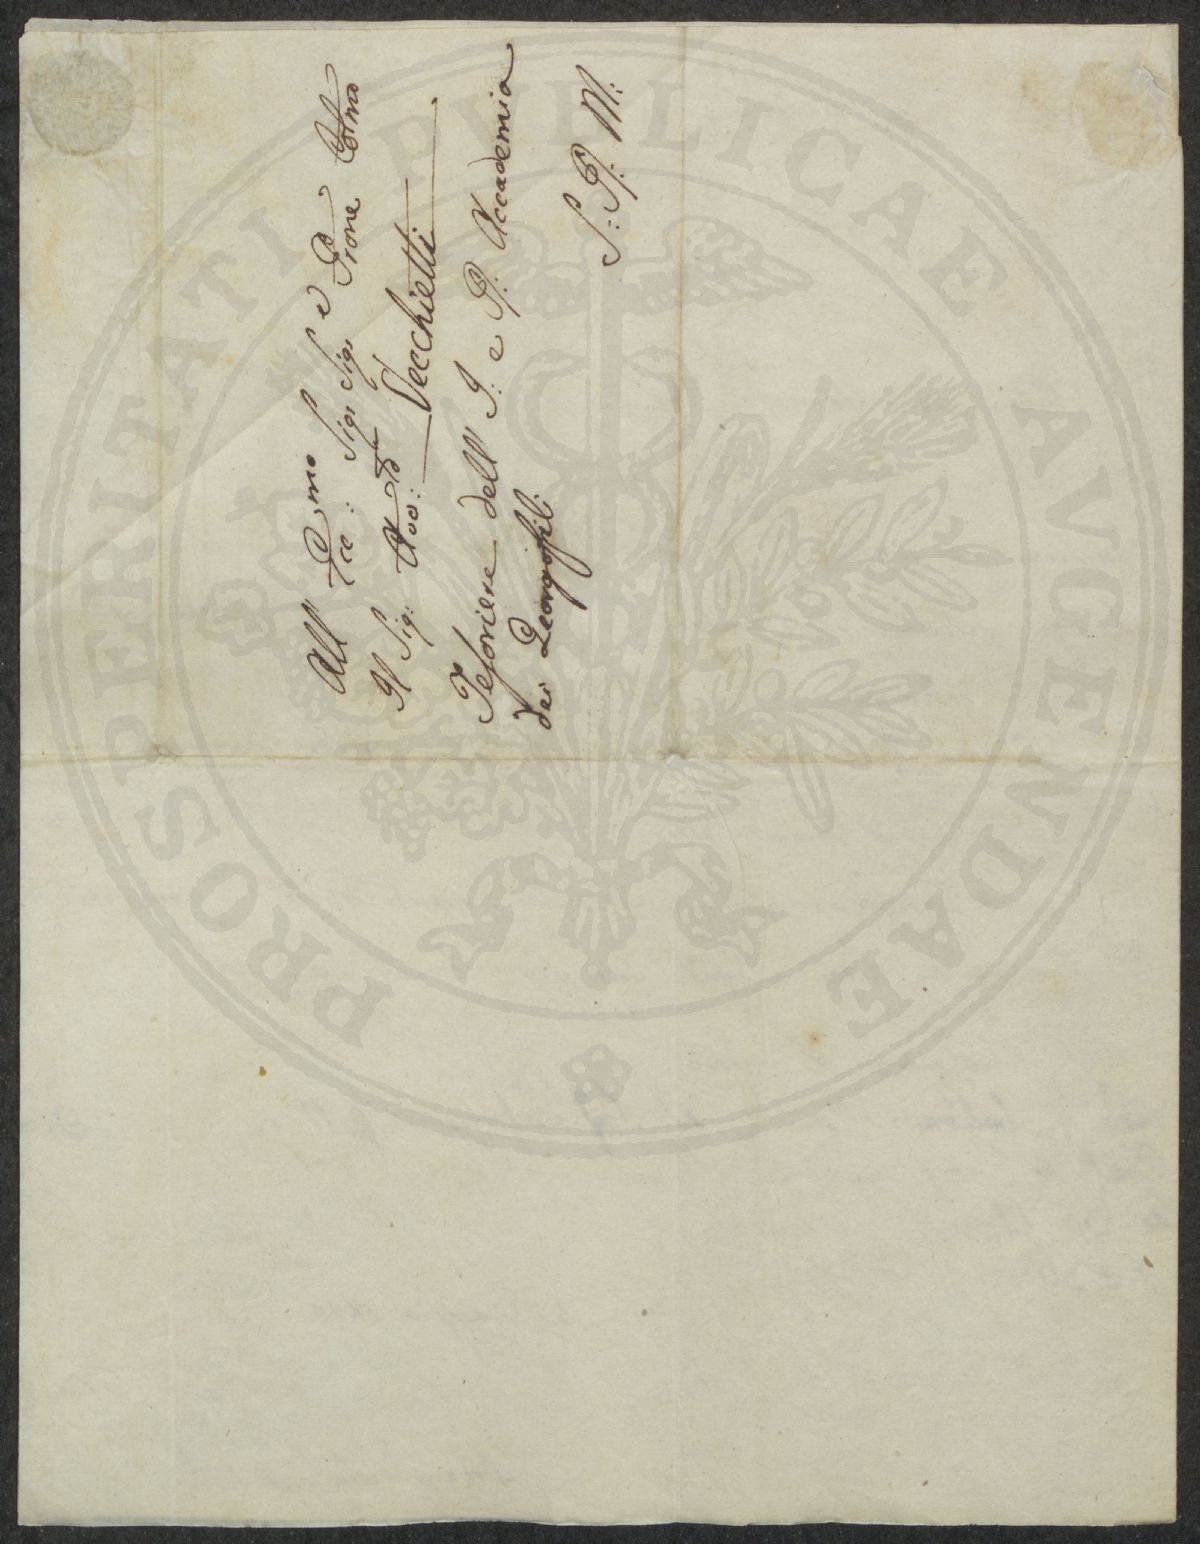 All' Ecc:mo Sig: Sig: e Prone Colmo
Il Sig: Avv:
Vecchietti
Tesoriere dell' I: e R: Accademia
dei Georgofili
S: P: M:
PROSPERITATI PVBLICAE AVGENDAE